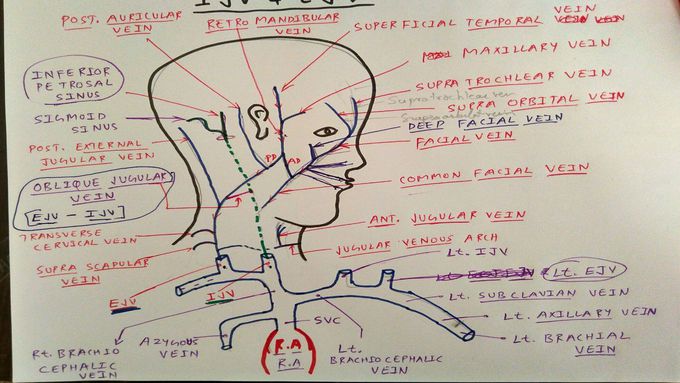 IJV & EJV
POST. AURICULAR
VEIN
RETRO MANDIBULAR
VEIN
SUPERFICIAL TEMPORAL VEIN
MAXILLARY VEIN
INFERIOR
PETROSAL
SINUS
SUPRA TROCHLEAR VEIN
Supratrochlear vein
SUPRA ORBITAL VEIN
Supraorbital vein
SIGMOID
SINUS
DEEP FACIAL VEIN
FACIAL VEIN
POST. EXTERNAL
JUGULAR VEIN
PD
AD
OBLIQUE JUGULAR
VEIN
[EJV - IJV]
COMMON FACIAL VEIN
ANT. JUGULAR VEIN
TRANSVERSE
CERVICAL VEIN
JUGULAR VENOUS ARCH
Lt. IJV
SUPRA SCAPULAR
VEIN
Lt. EJV
EJV
IJV
Lt. SUBCLAVIAN VEIN
Lt. AXILLARY VEIN
Lt. BRACHIAL
VEIN
SVC
Rt. BRACHIO
CEPHALIC
VEIN
AZYGOUS
VEIN
(R.A
R.A)
Lt.
BRACHIOCEPHALIC
VEIN